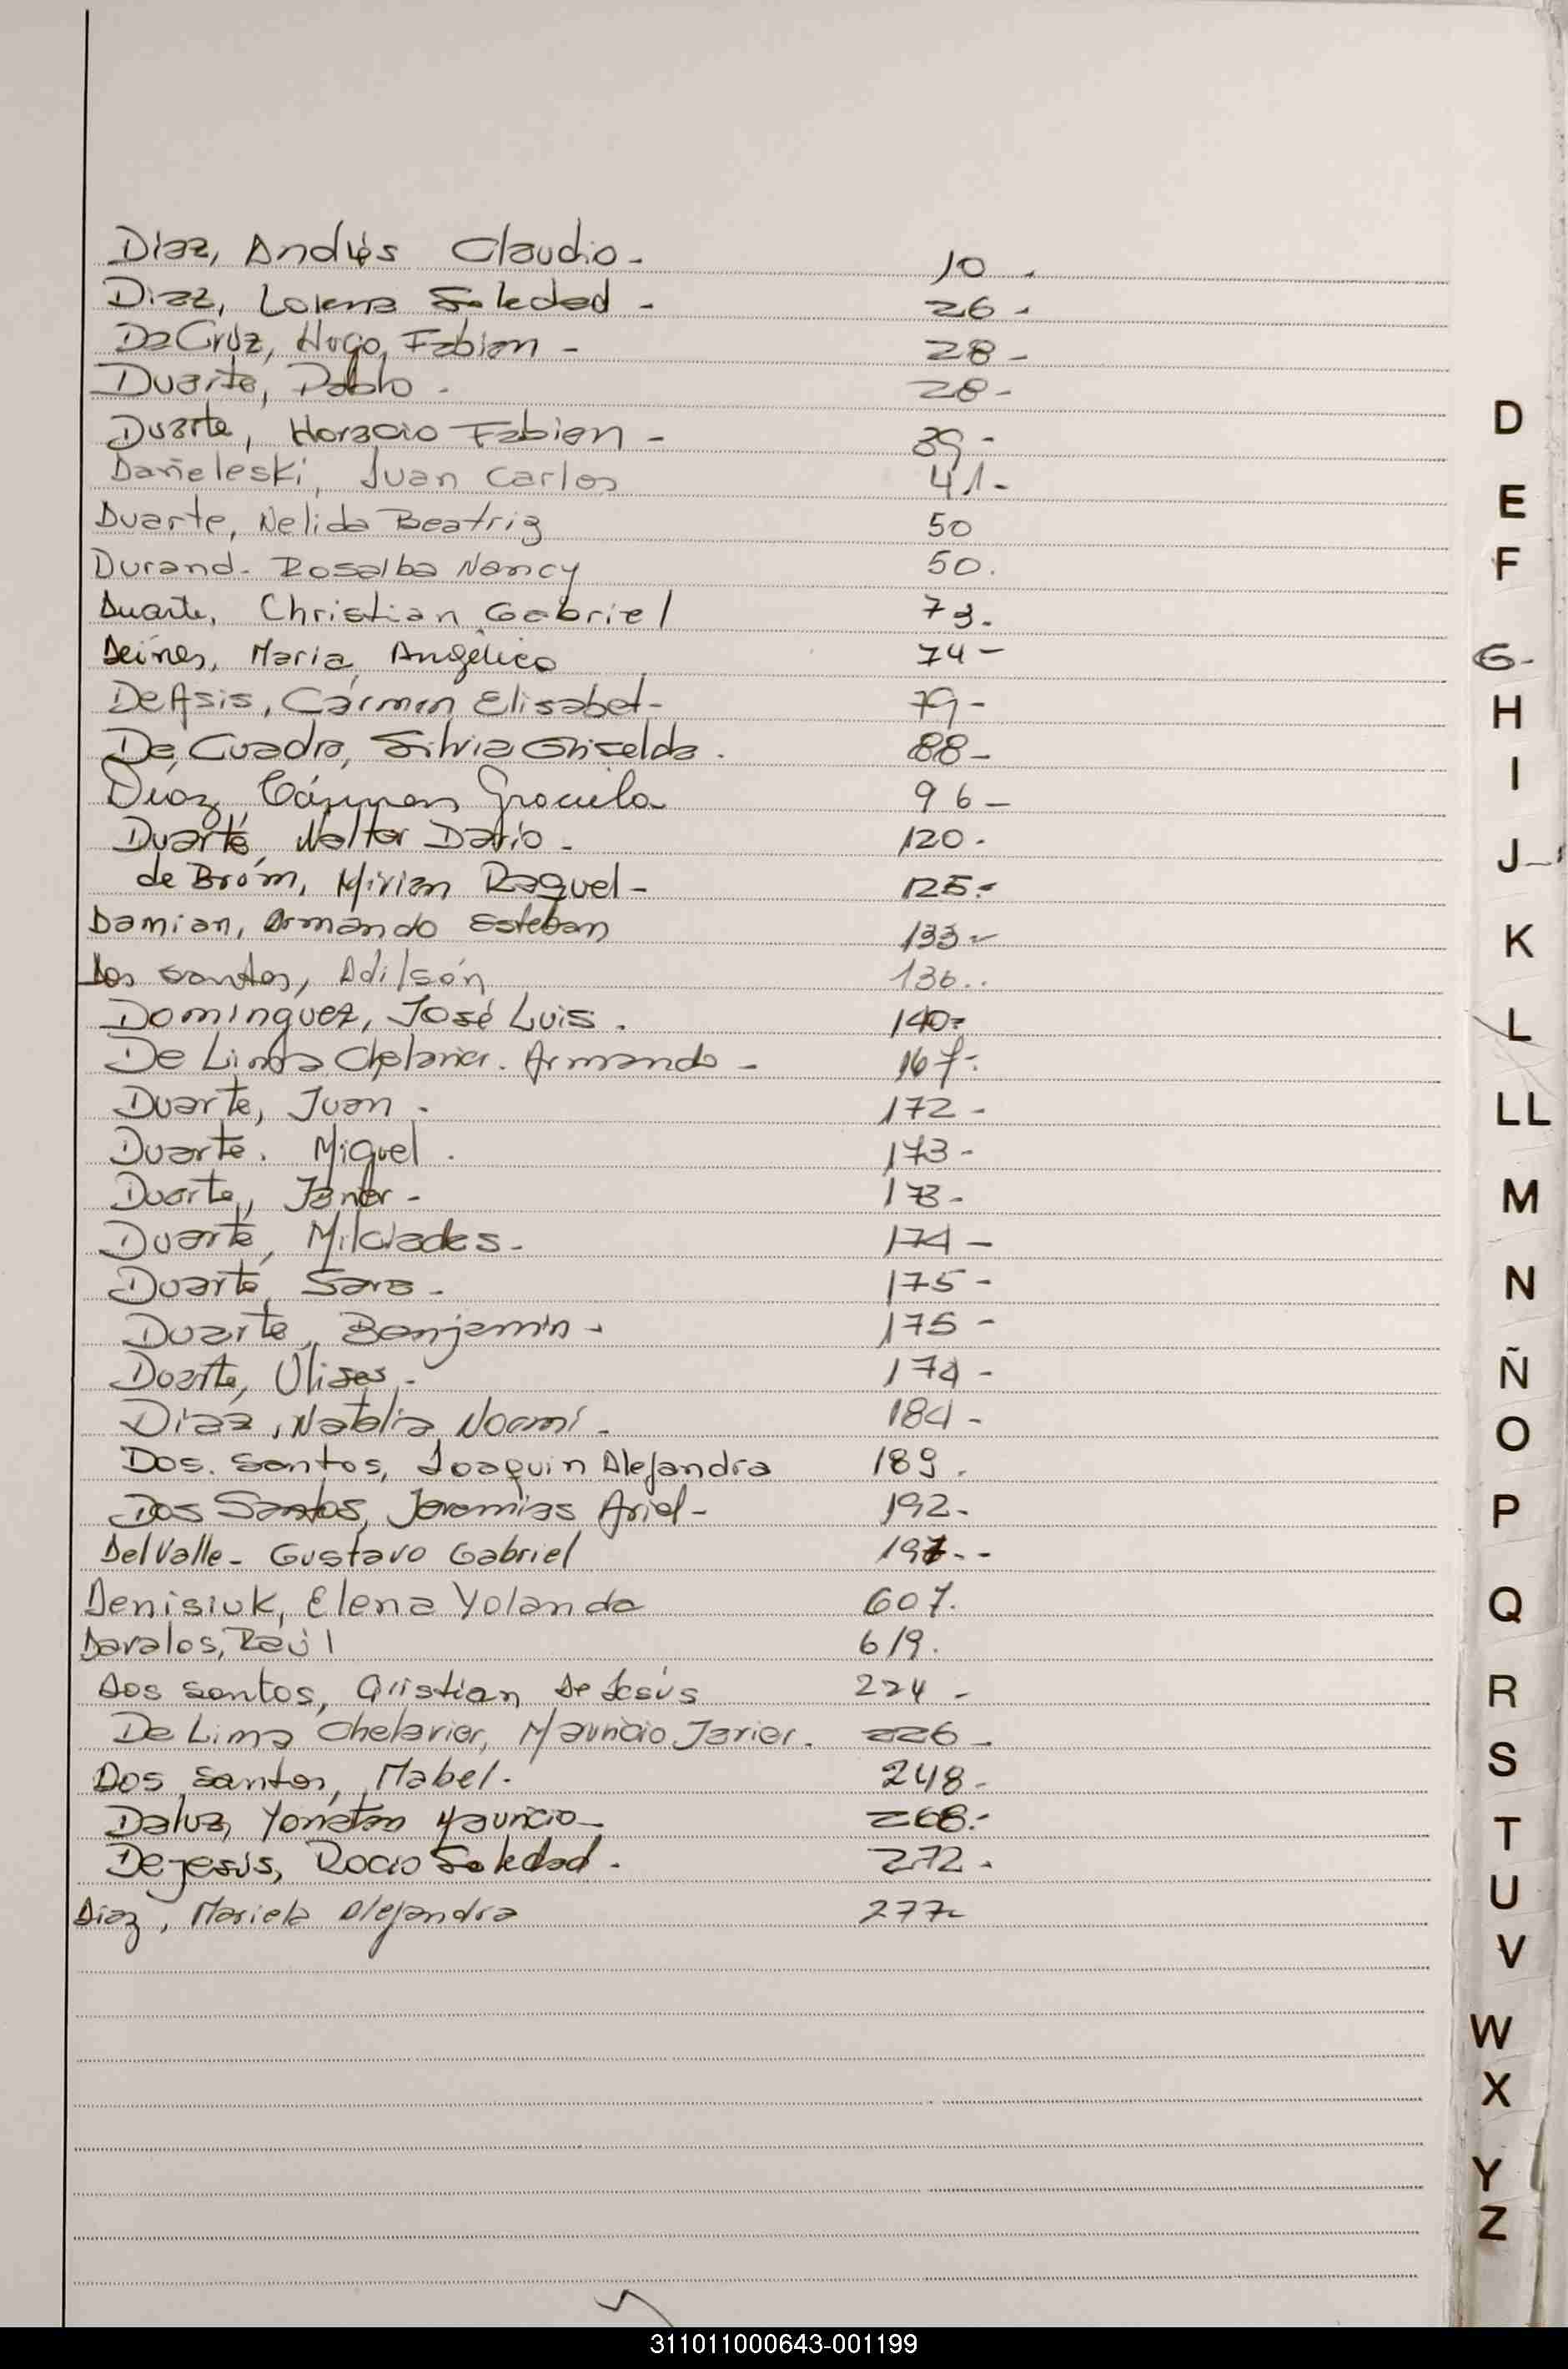 Diaz, Andrés Claudio - 10 -
Diaz, Lorena Soledad - 26 -
DaCruz, Hugo Fabian - 28 -
Duarte, Pablo - 28 -
Duarte, Horacio Fabian - 39 -
Dañeleski, Juan Carlos 41 -
Duarte, Nelida Beatriz 50
Durand - Rosalba Nancy 50.
Duarte, Christian Gabriel 73.
Deines, Maria Angelica 74 -
De Asis, Carmen Elisabet - 79 -
De Cuadra, Silvia Griselda . 88 -
Diaz, Cármen Graciela 96 -
Duarte, Walter Dario - 120 -
de Brom, Mirian Raquel - 125 -
Damian, Armando Esteban 133 -
Dos santos, Adilsón 136..
Dominguez, José Luis . 140 -
De Lima Chelavier. Armando - 167 -
Duarte, Juan - 172 -
Duarte. Miguel . 173 -
Duarte, - 173 -
Duarte, Milciades - 174 -
Duarte, Sara - 175 -
Duarte, Benjamin - 175 -
Duarte, Ulises - 174 -
Diaz, Natalia Noemí - 184 -
Dos. Santos, Joaquin Alejandra 189 .
Dos Santos, Jeremias Ariel - 192 -
Del Valle - Gustavo Gabriel 197 - -
Denisiuk, Elena Yolanda 607.
Davalos, Raúl 619.
Dos santos, Cristian De Jesús 224 -
De Lima Chelavier, Mauricio Javier . 226 -
Dos santos, Mabel . 248 -
Daluz, Yonatan Mauricio - 268 -
Dejesús, Rocio Soledad . 272 -
Diaz, Mariela Alejandra 277 -
D
E
F
G -
H
I
J
K
L
LL
M
N
Ñ
O
P
Q
R
S
T
U
V
W
X
Y
Z
311011000643-001199